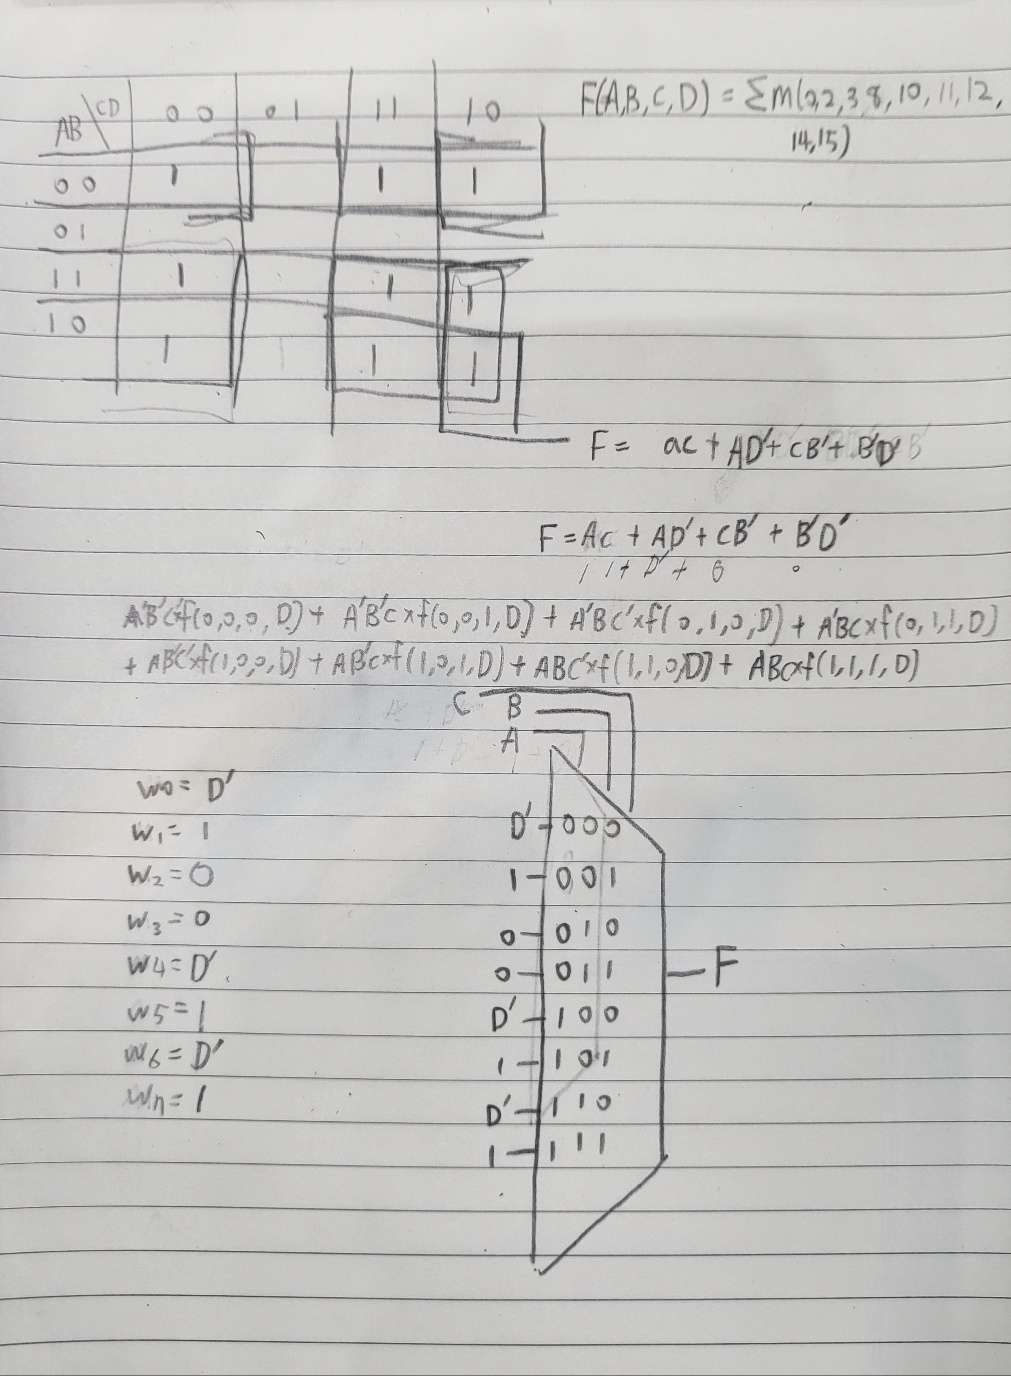 F(A,B,C,D) = Σm(0,2,3,8,10,11,12,
14,15)
AB\CD 00 01 11 10
00 1 1 1
01
11 1 1 1
10 1 1 1
F= ac + AD'+ CB'+ B'D'
F = Ac + AD' + CB' + B'D'
1 1 + D' + 0 0
A'B'C'f(0,0,0,D) + A'B'C×f(0,0,1,D) + A'BC'×f(0,1,0,D) + A'BC×f(0,1,1,D)
+ AB'C'×f(1,0,0,D) + AB'C×f(1,0,1,D) + ABC'×f(1,1,0,D) + ABC×f(1,1,1,D)
C
B
A
W0 = D'
W1 = 1
W2 = 0
W3 = 0
W4 = D'
W5 = 1
W6 = D'
Wn = 1
D' 000
1 001
0 010
0 011
D' 100
1 101
D' 110
1 111
F